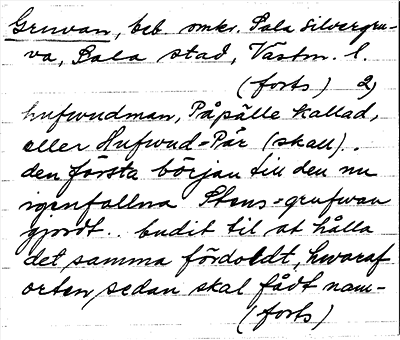 Gruvan, beb. omkr. Sala Silvergru-
va, Sala stad, Västm. l.
(forts) 2)
hufwudman, Påpälle kallad,
eller Hufwud-Pär (skall) ..
den första början till den nu
igenfallna Stens-grufwan
giordt .. budit til at hålla
det samma fördoldt, hwaraf
orten sedan skal fådt nam-
(forts)